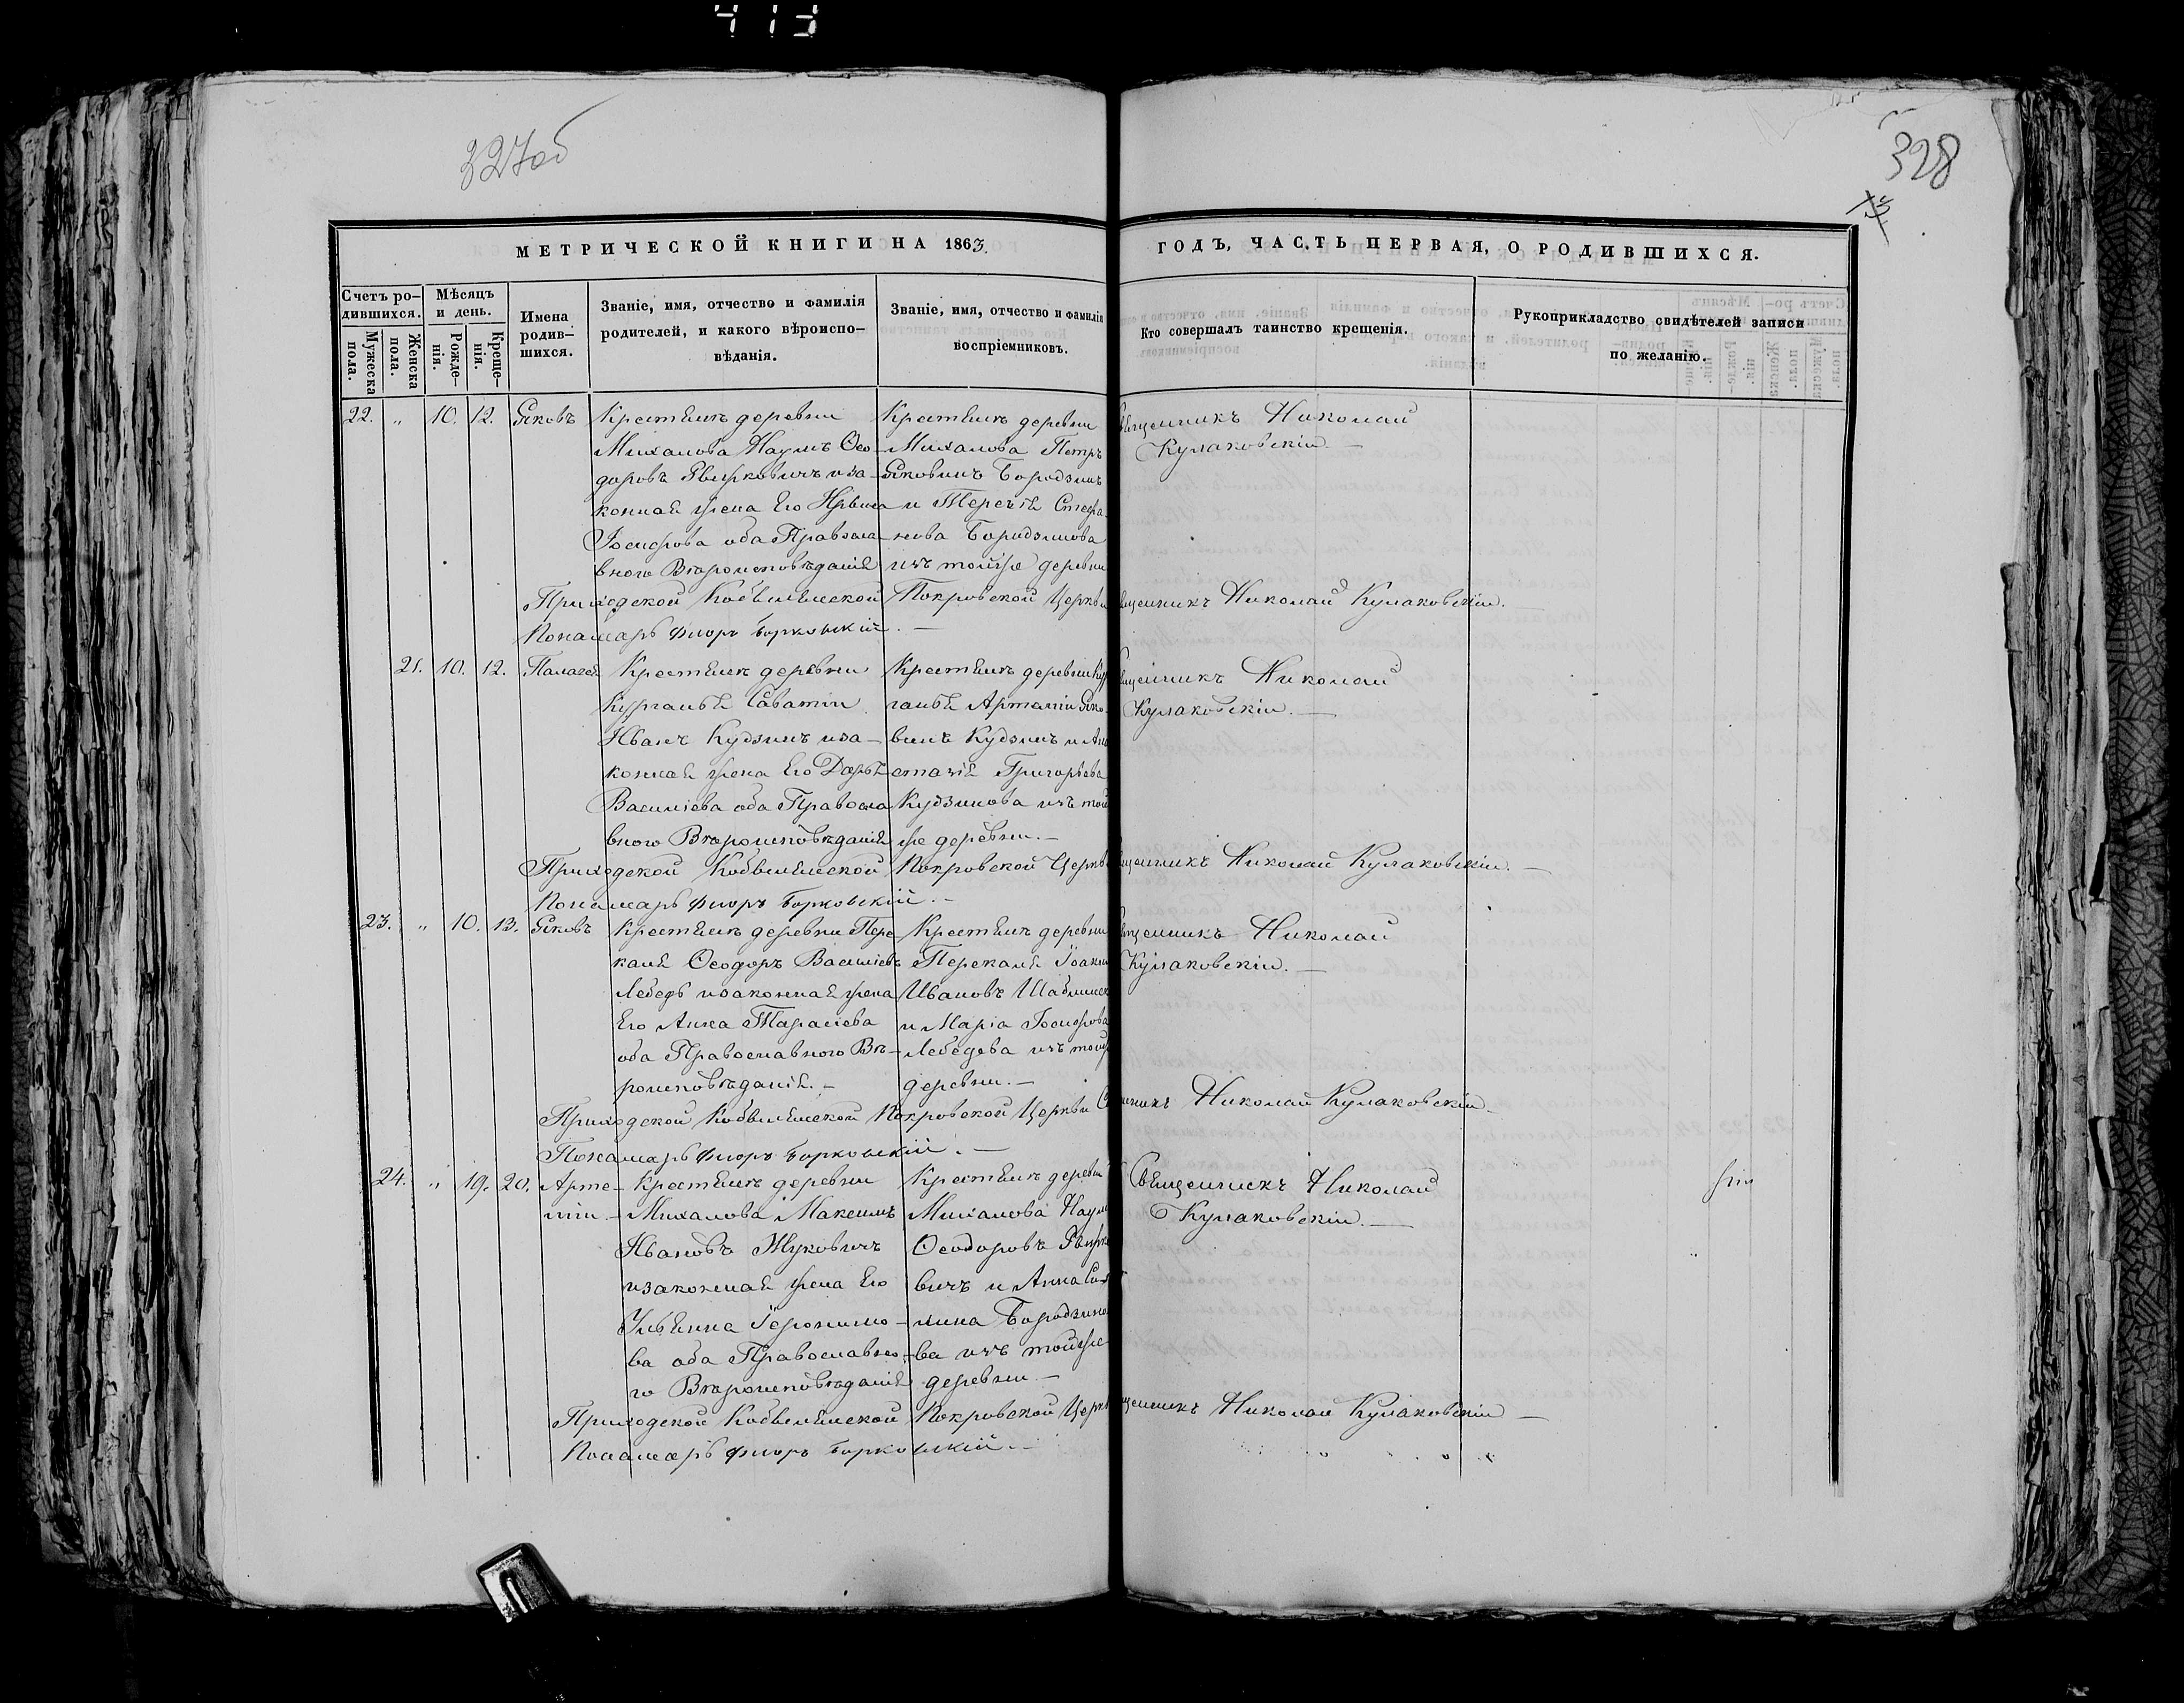 413
327об
328
13
МЕТРИЧЕСКОЙ КНИГИ НА 1863.
ГОДЪ, ЧАСТЬ ПЕРВАЯ, О РОДИВШИХСЯ.
Счетъ родившихся.
Мужеска пола.
Женска пола.
Мѣсяцъ и день.
Рожденія.
Крещенія.
Имена родившихся.
Званіе, имя, отчество и фамилія родителей, и какого вѣроисповѣданія.
Званіе, имя, отчество и фамилія воспріемниковъ.
Кто совершалъ таинство крещенія.
Рукоприкладство свидѣтелей записи по желанію.
22. " 10. 12. Яковъ
Крестьянъ деревни
Михалова Наумъ Ѳео-
доровъ иза-
конная жена Его Ирына
Іосифова оба Правосла
вного Вѣроисповѣданія
Крестьянъ деревни
Михалова Петръ
Яковинъ Бородзинъ
и Терезія Стефа-
нова Бородзинова
изъ тойже деревни
Священникъ Николай
Кулаковскій. —
Приходской Кобыльинской Покровской Церкви Священникъ Николай Кулаковскій.
Понамарь Флоръ Борковскій. —
21. 10. 12. Палагея
Крестьянъ деревни
Курганья Саватій
Иванъ Кудзинъ иза-
конная жена Его Дарья
Василіева оба Правосла
вного Вѣроисповѣданія
Крестьянъ деревни Кур
ганья Артемій Яко-
винъ Кудзинъ и Ана
стазія Григорьева
Кудзинова изъ той
же деревни. —
Священникъ Николай
Кулаковскій. —
Приходской Кобыльинской Покровской Церкви Священникъ Николай Кулаковскій. —
Понамарь Флоръ Борковскій. —
23. " 10. 13. Яковъ
Крестьянъ деревни Пере
каля Ѳеодоръ Василіевъ
Лебедь изаконная жена
Его Анна Тарасіева
оба Православного Вѣ-
роисповѣданія. —
Крестьянъ деревни
Перекаля Іоаким
Ивановъ
и Марія Іосифова
Лебедева изъ тойже
деревни. —
Священникъ Николай
Кулаковскій. —
Приходской Кобыльинской Покровской Церкви Священникъ Николай Кулаковскій.
Понамарь Флоръ Борковскій. —
24. " 19. 20. Арте-
мій. —
Крестьянъ деревни
Михалова Максимъ
Ивановъ Жуковичъ
изаконная жена Его
Ульянна Іеронимо-
ва оба Православно-
го Вѣроисповѣданія
Крестьянъ деревни
Михалова Наумъ
Ѳеодоровъ
вичъ и Анна
Бородзино
ва изъ тойже
деревни. —
Священникъ Николай
Кулаковскій. —
Приходской Кобыльинской Покровской Церкви Священникъ Николай Кулаковскій —
Понамарь Флоръ Борковскій. —